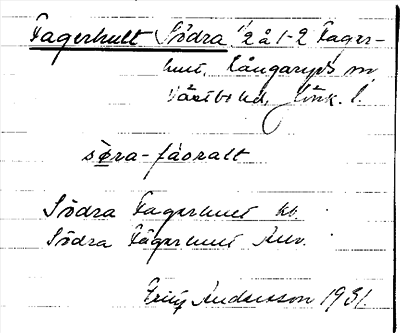 Fagerhult Södra 1/2 å 1-2 Fager-
hult, Långaryds sn
Västbo hd, Jönk. l.
söra-faoralt
Södra Fagerhult kb.
Södra Fagerhult
Fritz Andersson 1931.